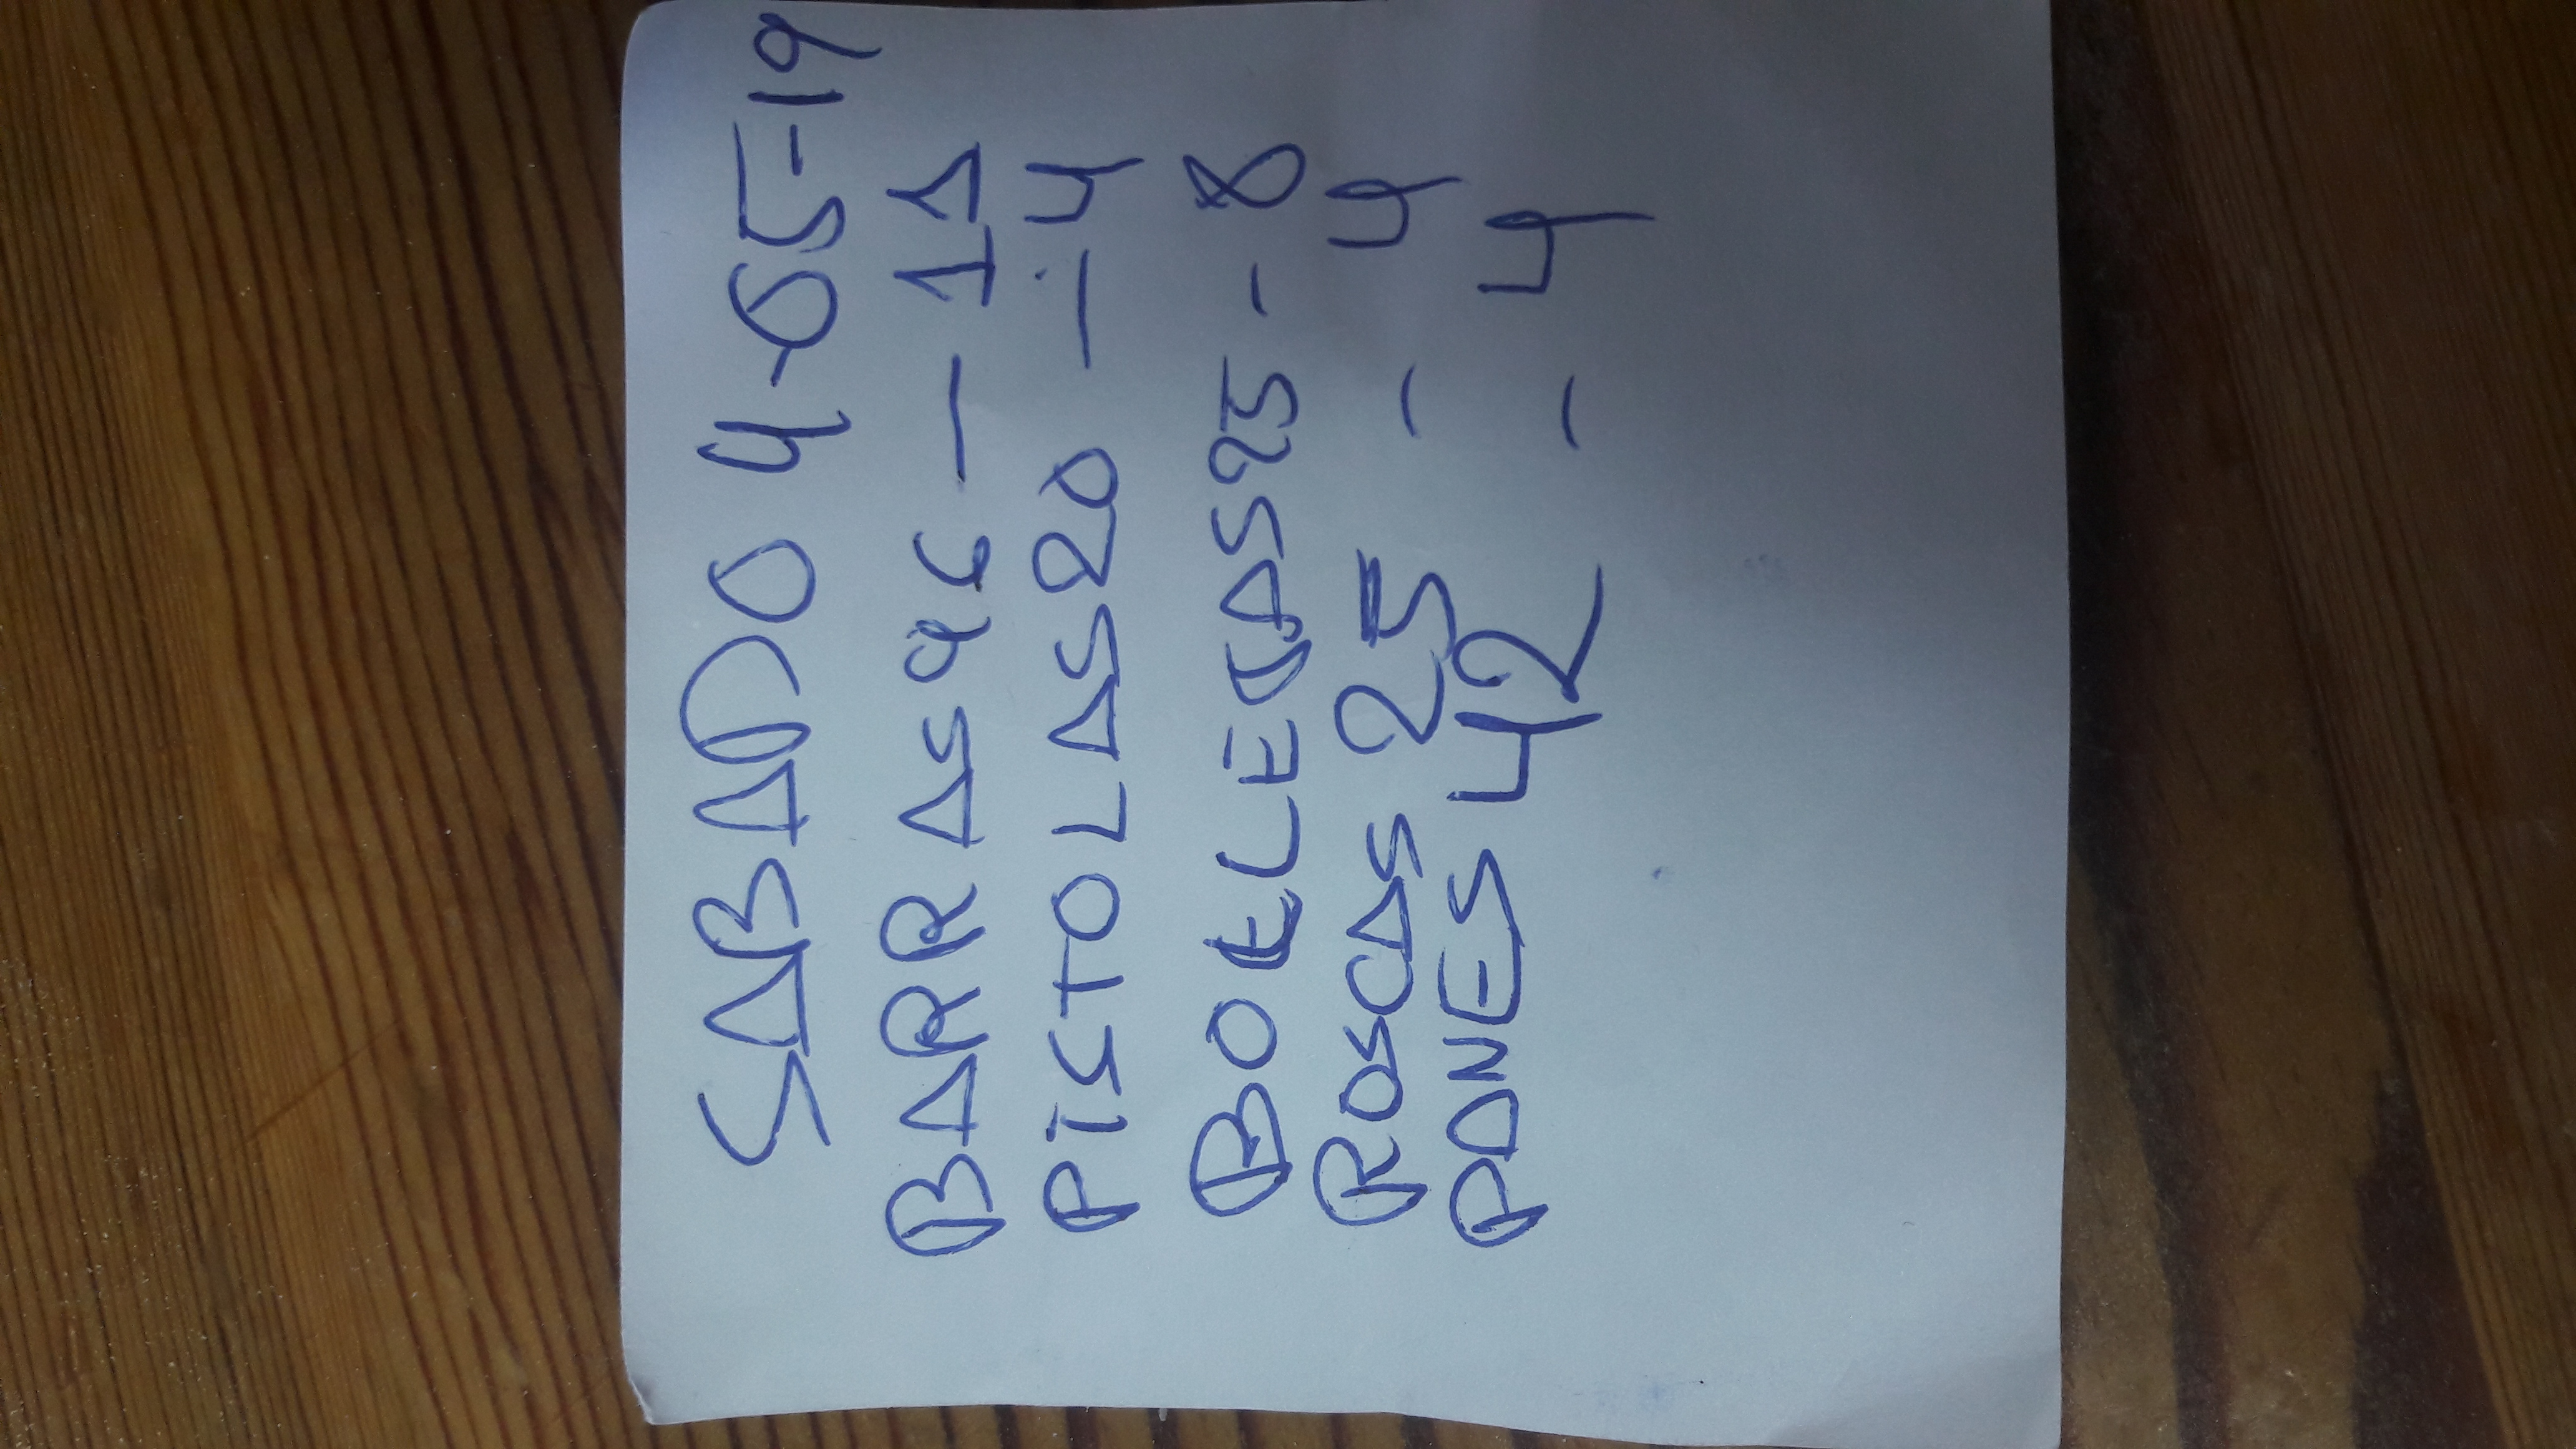 SABADO 4-05-19
BARRAS 96 - 11
PISTOLAS 20 - 4
BOLLERAS 25 - 8
ROSCAS 25 - 4
PANES 42 - 4